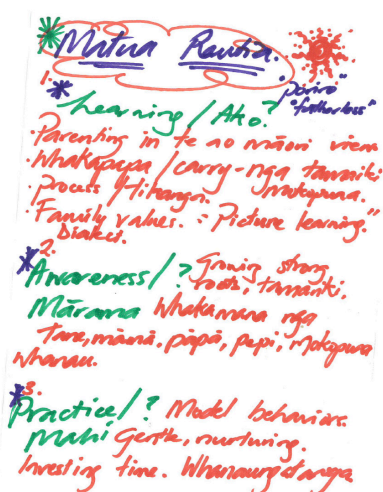 Matua Rautia.
"pōriro"
"fatherless"
1.
Learning / Ako?
· Parenting in te ao māori view
· Whakapapa / carry - nga tamariki
mokopuna.
· Process / Tikanga.
· Family values. : Picture learning."
Dialect.
2.
Awareness / ? Growing strong
roots, tamariki,
Mārama Whakamana nga
Tane, māmā, pāpā, pepi, mokopuna
whanau.
3.
Practice / ? Model behaviors.
Mahi Gentle, nurturing.
Investing time. Whanaungatanga